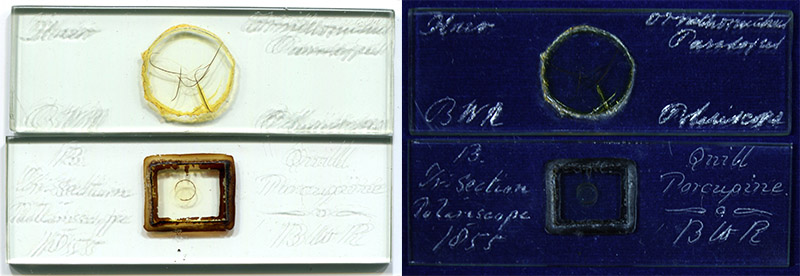 Hair
Paradoxus
BWR
Polariscope
Quill
Tr. Section
Porcupine
Polariscope
1855
BWR
Hair
Paradoxus
BWR
Polariscope
B.
Tr. Section
Polariscope
1855
Quill
Porcupine.
BWR